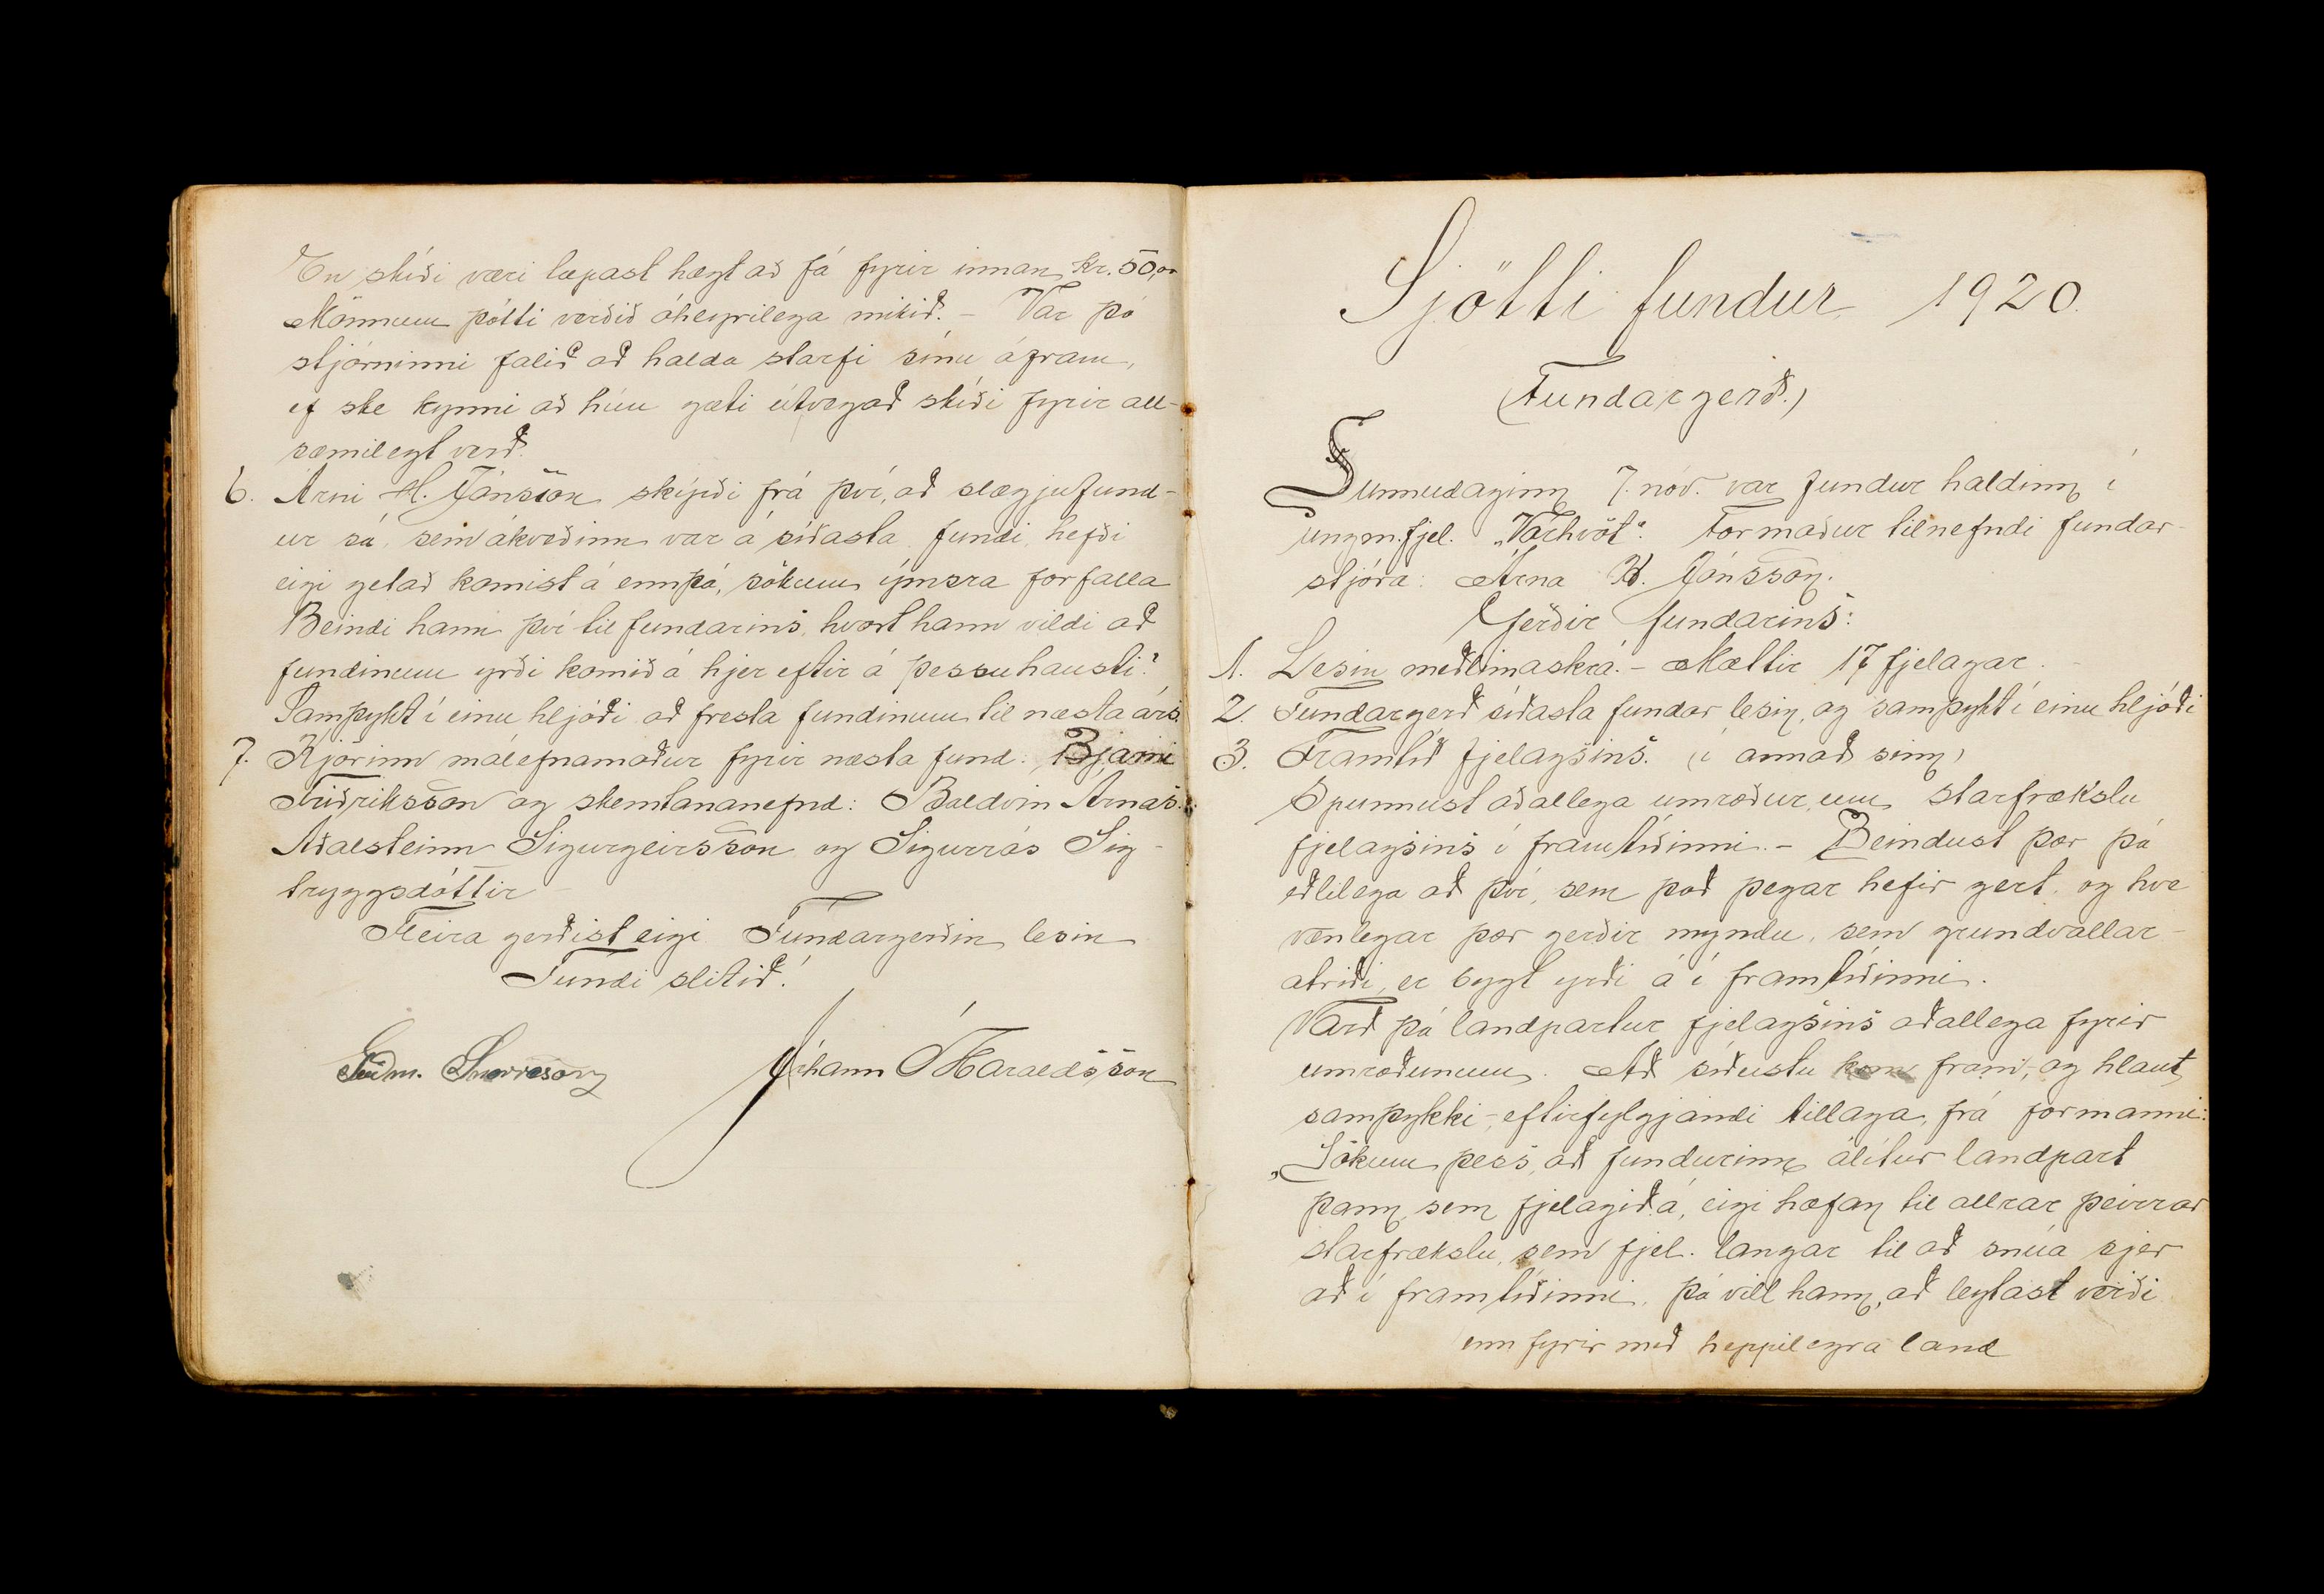 En skíði væri tæpast hægt að fá fyrir innan kr. 50,00
Mönnum þótti verðið óheyrilega mikið. - Var þó
stjórninni falið að halda starfi sínu áfram,
ef ske kynni að hún gæti útvegað skíði fyrir all-
sæmilegt verð.
6. Árni H. Jónsson skýrði frá því, að slægjufund-
ur sá, sem ákveðinn var á síðasta fundi, hefði
eigi getað komist á ennþá, sökum ýmsra forfalla
Beindi hann því til fundarins, hvort hann vildi að
fundinum yrði komið á hjer eftir á þessu hausti?
Samþykt í einu hljóði að fresta fundinum til næsta árs.
7. Kjörinn málefnamaður fyrir næsta fund: Bjarni
Friðriksson og skemtananefnd: Baldvin Árnas.
Aðalsteinn Sigurgeirsson og Sigurrós Sig-
tryggsdóttir
Fleira gerðist eigi Fundargerðin lesin
Fundi slitið!
Guðm. Snorrason Jóhann Ó Haraldsson
Sjötti fundur 1920.
(Fundargerð.)
Sunnudaginn 7. nóv. var fundur haldinn í
ungm.fjel. „Vorhvöt“. Formaður tilnefndi fundar-
stjóra: Árna H. Jónsson.
Gerðir fundarins:
1. Lesin meðlimaskrá. - Mættir 17 fjelagar.
2. Fundargerð síðasta fundar lesin, og samþykt í einu hljóði
3. Framtíð fjelagsins. (í annað sinn)
Spunnust aðallega umræður um starfrækslu
fjelagsins í framtíðinni. - Beindust þær þá
eðlilega að því, sem það þegar hefir gert, og hve
vænlegar þær gerðir myndu, sem grundvallar-
atriði, er bygt yrði á í framtíðinni.
Varð þá landpartur fjelagsins aðallega fyrir
umræðunum. Að síðustu kom fram, og hlaut
samþykki, eftirfylgjandi tillaga, frá formanni:
„Sökum þess, að fundurinn álítur landpart
þann, sem fjelagið á, eigi hæfan til allrar þeirrar
starfrækslu, sem fjel. langar til að snúa sjer
að í framtíðinni, þá vill hann, að leytast verði
enn fyrir með heppilegra land